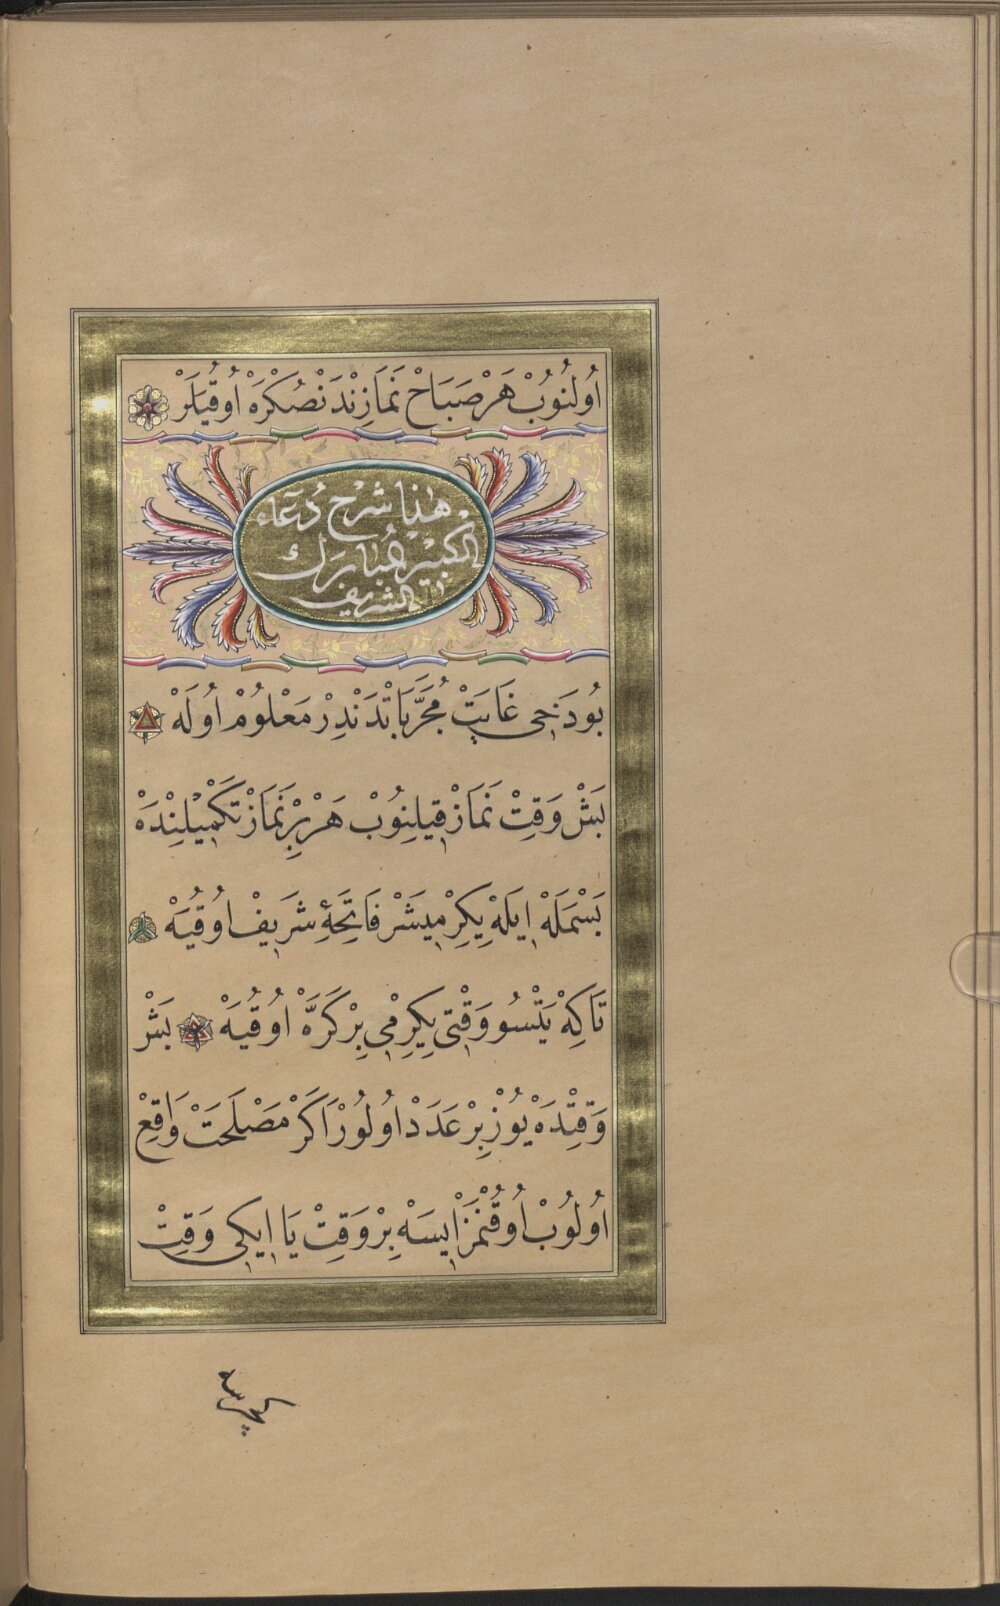 اُولُنُوبْ هَرْ صَبَاحْ نَمَازِنْدَنْ صُكْرَهْ اُوقُيَلَرْ
هٰذَا شَرْحِ دُعَاءِ
الْكَبِيْرِ مُبَارَكْ
الشَّرِيفْ
بُو دَخِى غَايَتْ مُجَرَّبَاتْدَنْدِرْ مَعْلُومْ اُولَهْ
بَشْ وَقِتْ نَمَازْ قِيلِنُوبْ هَرْ بِرْ نَمَازْ تَكْمِيْلِنْدَهْ
بَسْمَلَهْ اِيلَهْ يِكِرْمِيشَرْ فَاتِحَهِٔ شَرِيفْ اُوقُيَهْ
تَاكِهْ يَتْسُو وَقْتِى يِكِرْمِى بِرْ كَرَّهْ اُوقُيَهْ بَشْ
وَقِتْدَهْ يُوزْ بِرْ عَدَدْ اُولُورْ اَكَرْ مَصْلَحَتْ وَاقِعْ
اُولُوبْ اُوقُنْمَزْ اِيسَهْ بِرْ وَقِتْ يَا اِيكِى وَقِتْ